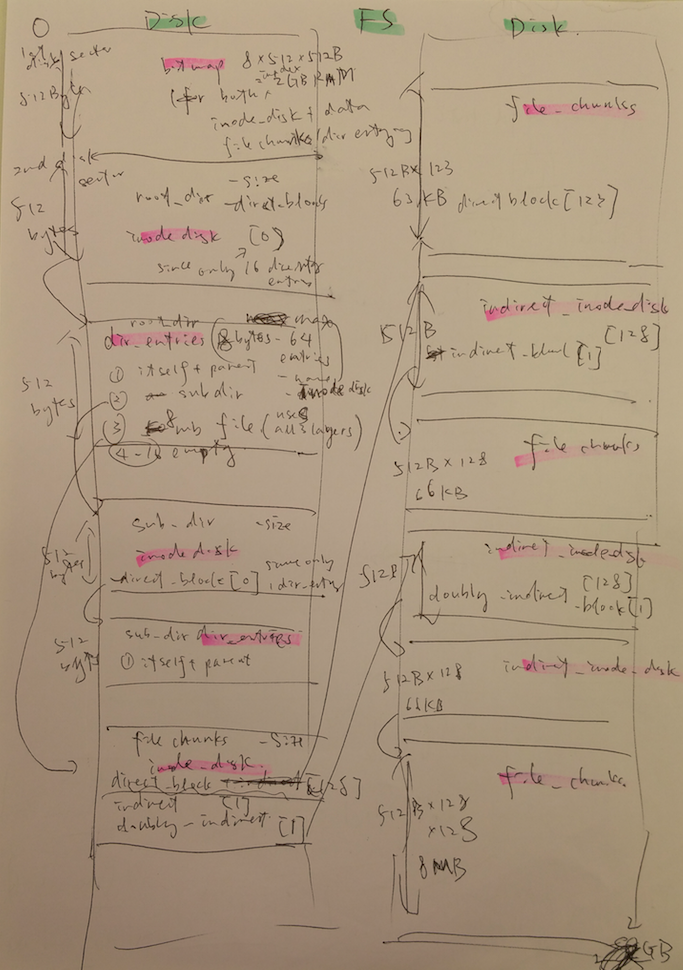 0 Disk FS Disk
1st disk sector
512 Byte
bitmap 8 x 512 x 512B
2GB
(for both
inode_disk + data
file chunks / dir entries)
2nd disk sector
512 bytes
root_dir - size
- direct_blocks
inode disk [0]
since only 16 direntry
entries
root_dir max
dir_entries (8 bytes - 64
entries
512 bytes
① itself + parent - none
② sub dir - inode disk
③ 8mb file (uses
all 3 layers)
4-16 empty
sub_dir - size
512 bytes
inode disk
direct_block [0] since only
1 dir_entry
512 bytes
sub-dir dir_entries
① itself + parent
file chunks - size
inode_disk
direct_block [128]
indirect [1]
doubly-indirect [1]
file_chunks
512B x 123
63 KB direct block [123]
indirect_inode_disk
[128]
512B
indirect_block [1]
file chunks
512B x 128
66KB
indirect_inode disk
512B
[128]
doubly-indirect
-block [1]
indirect_inode_disk
512B x 128
66KB
file_chunks
512B x 128
x 128
8MB
2
GB